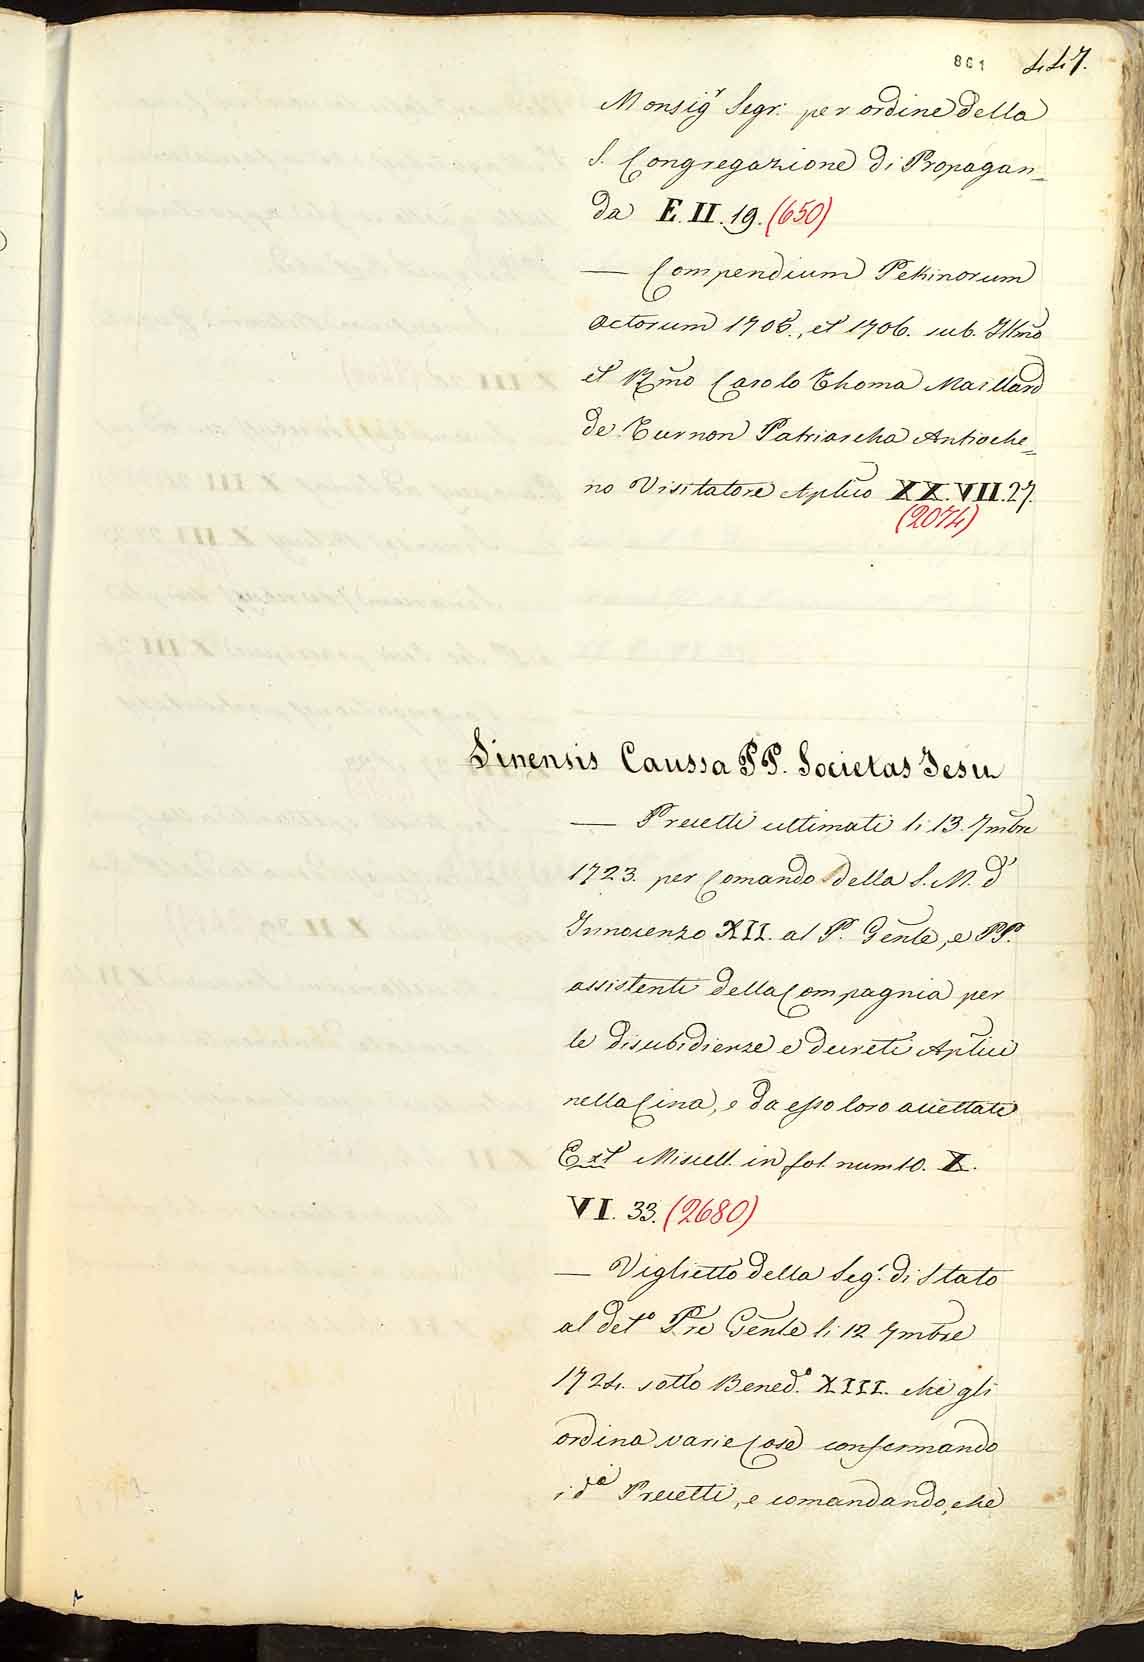 801 447.
Monsigr Segr: per ordine della
S. Congregazione di Propagan=
da E. II. 19. (650)
— Compendium Pekinorum
actorum 1705., et 1706. sub. Illmo
et Rmo Carolo Thoma Maillard
de Turnon Patriarcha Antioche=
no Visitatore Aplico XX. VII. 27.
(2074)
Sinensis Caussa PP. Societas Jesu
— Precetti ultimati li 13. 7mbre
1723. per Comando della S. M. d'
Innocenzo XII. al P. Genle, e PP.
assistenti della Compagnia per
le disubidienze e decreti Aplici
nella Cina, e da esso loro accettati
Ext Miscell. in fol. num 10. X.
VI. 33. (2680)
— Viglietto della Segr. di Stato
al deto Pre Genle li 12 7mbre
1724. sotto Bened.o XIII. che gli
ordina varie Cose confermando
i di Precetti, e comandando, che